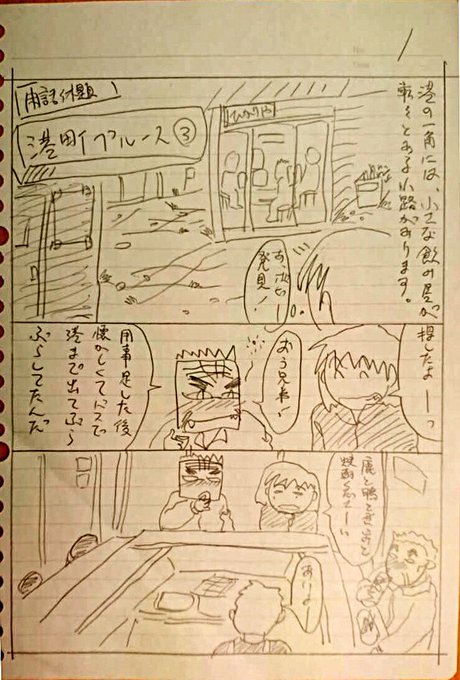 1
港の一角には、小さな飲み屋が
転々とある小路があります。
閑話休題
港町イブブルース③
ひかりや
発見!
探したよーーっ
おう兄弟!
用事足した後
懐かしくてバスで
港まで出てぶら
ぶらしてたんだ
焼酎くださーい
あいよ